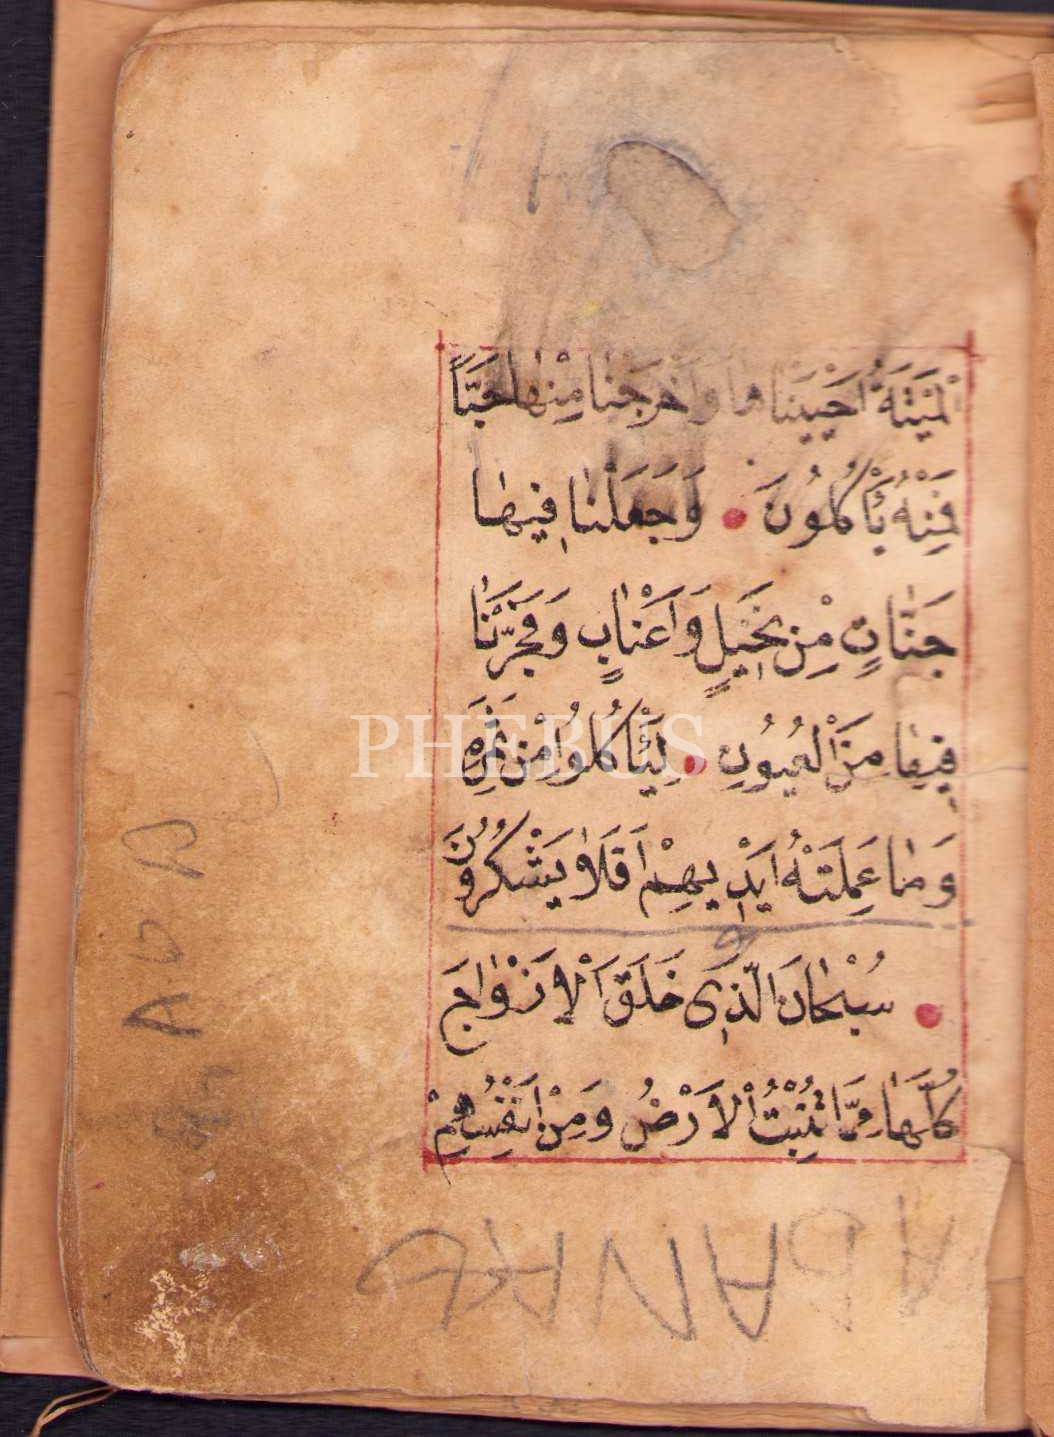 الْمَيْتَةُ اَحْيَيْنَاها وَاَخْرَجْنٰا مِنْهٰا حَبّاً
فَمِنْهُ يَأْكُلُونَ وَجَعَلْنٰا فيِهٰا
جَنّٰاتٍ مِنْ نَخِيلٍ وَاَعْنٰابٍ وَفَجَّرْنٰا
فِيهٰا مِنَ الْعُيُونِ لِيَأْكُلُوا مِنْ ثَمَرِهِ
وَمٰا عَمِلَتْهُ اَيْدِيهِمْ اَفَلاٰ يَشْكُرُونَ
سُبْحٰانَ الَّذِى خَلَقَ الْاَزْوٰاجَ
كُلَّهَا مِمَّا تُنْبِتُ الْاَرْضُ وَمِنْ اَنْفُسِهِمْ
PHEBUS
ADA